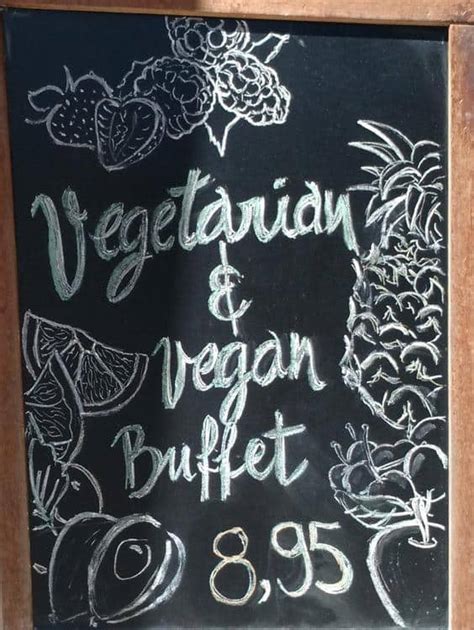 Vegetarian
&
Vegan
Buffet
8,95